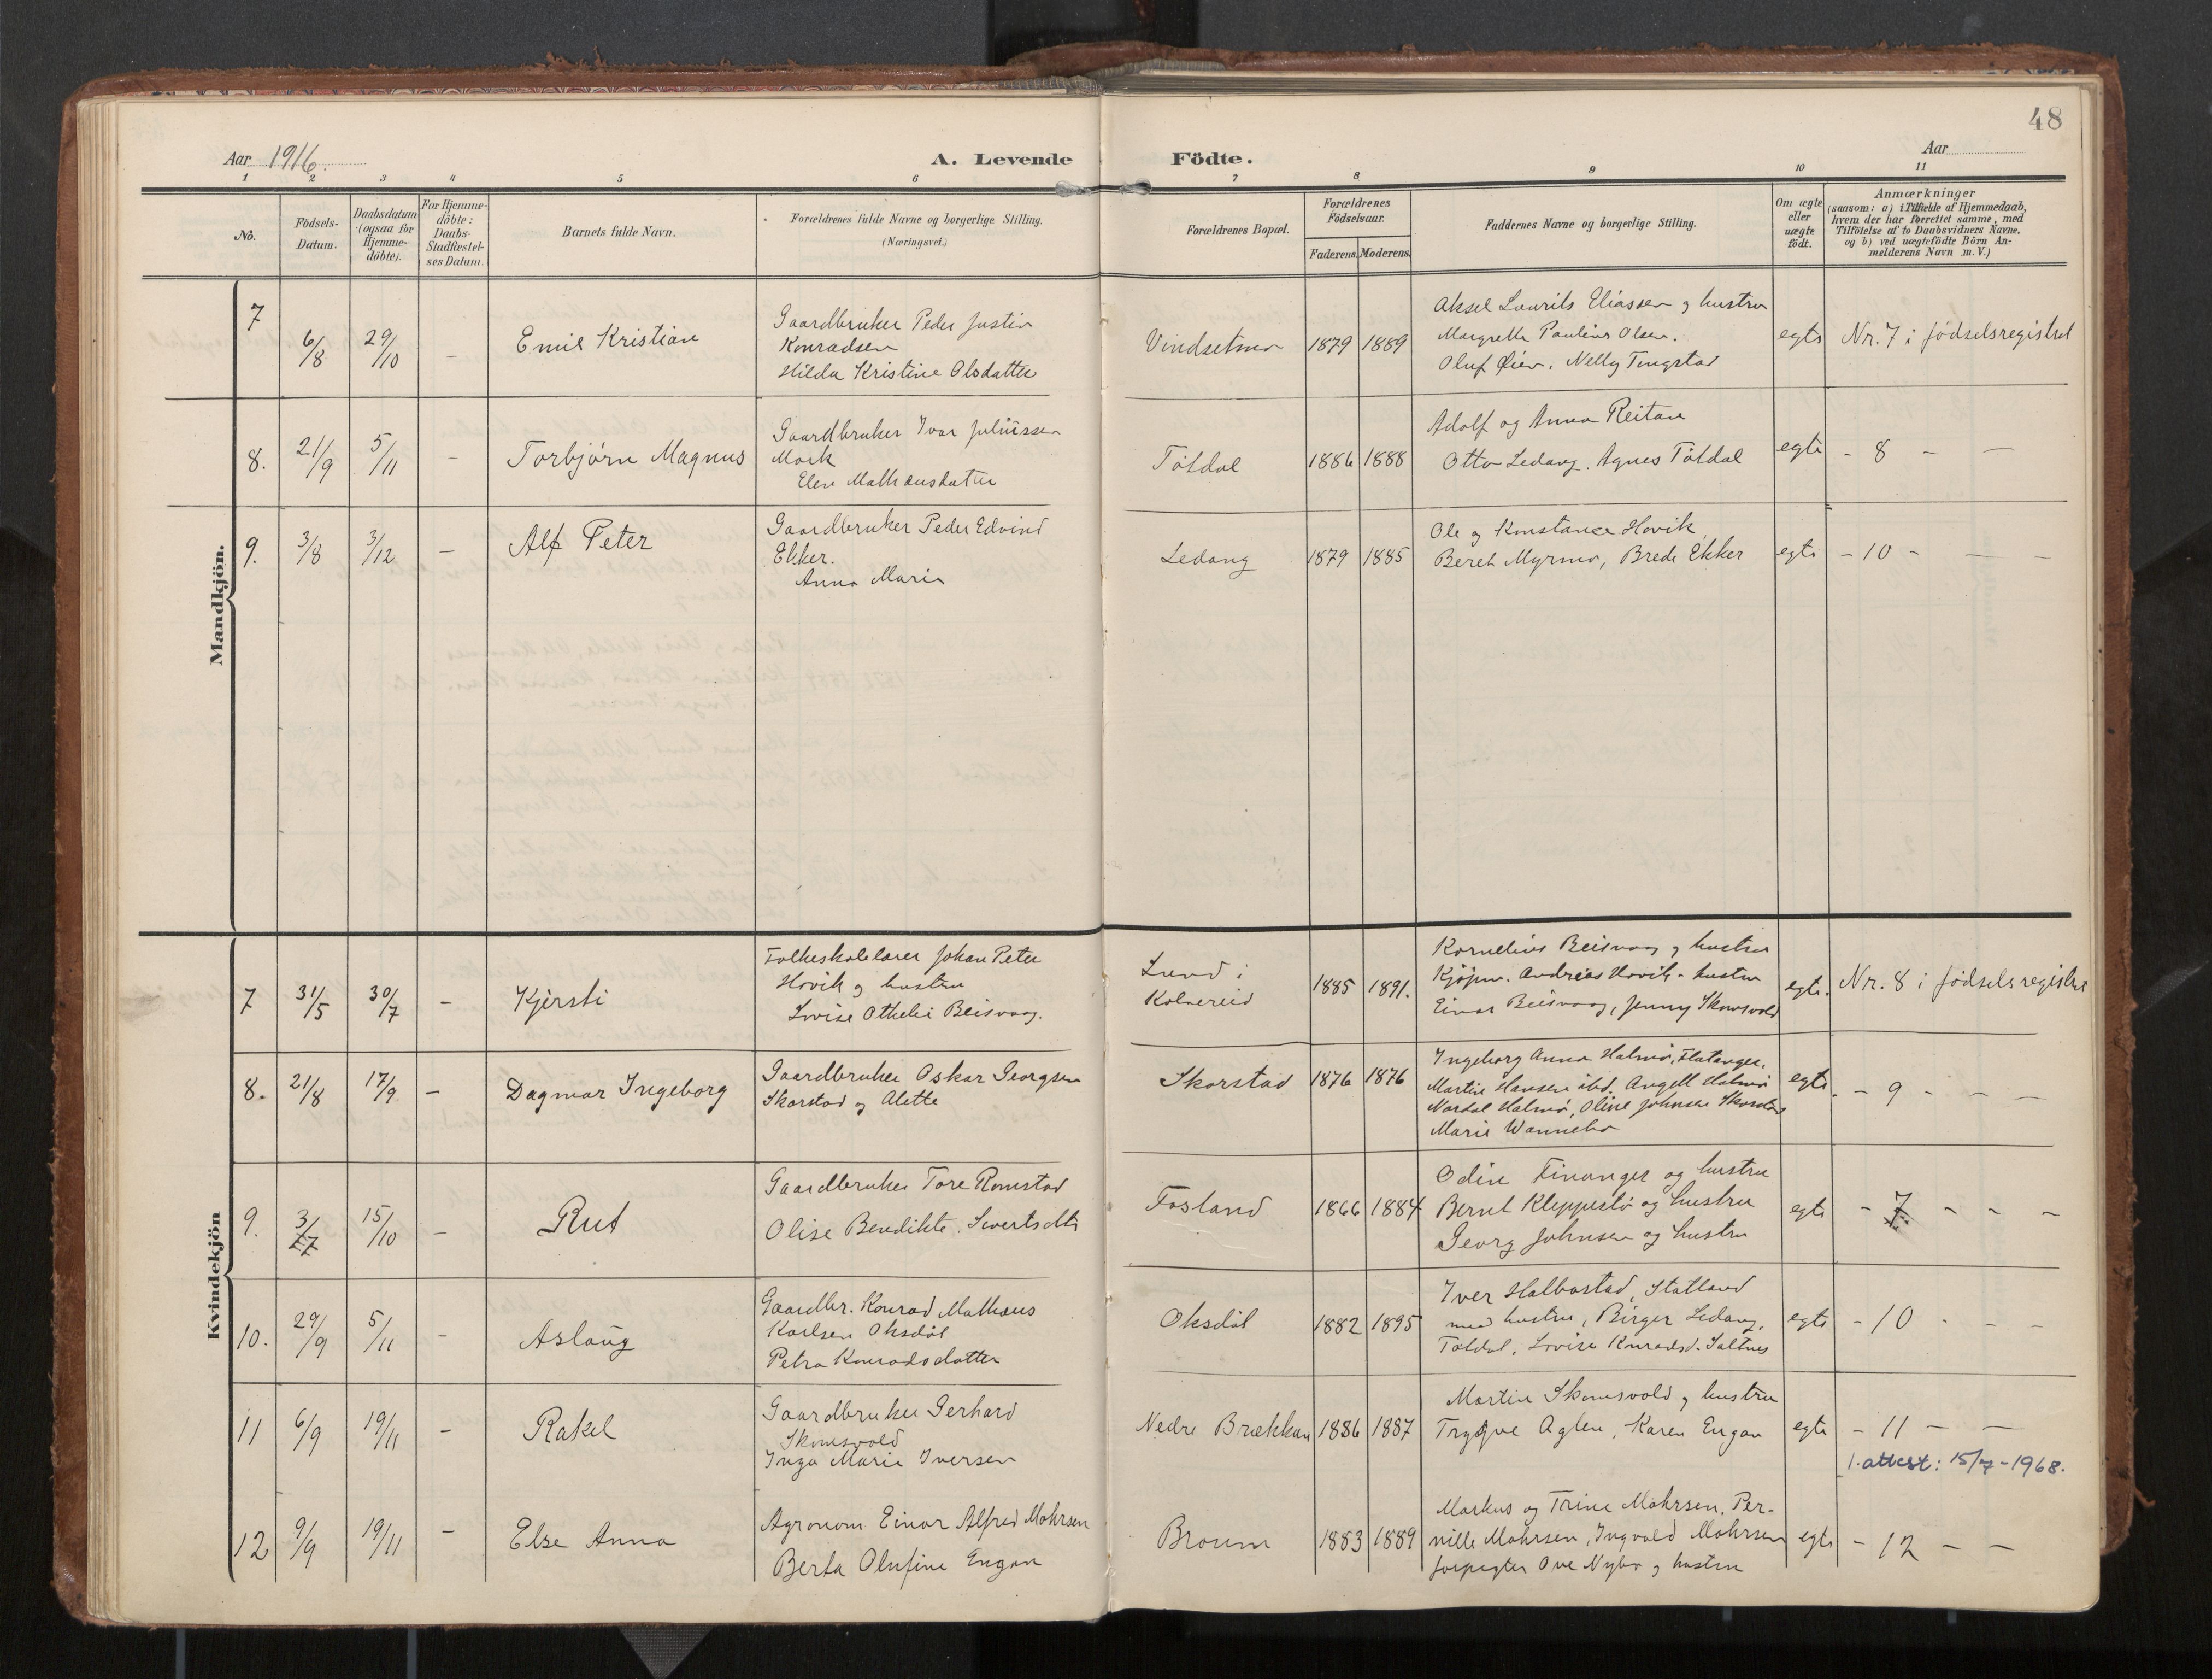 48
Aar 1916.
A. Levende Födte.
Aar
1 2 3 4 5 6 7 8 9 10 11
No.
Födsels-Datum.
Daabsdatum (ogsaa for Hjemme-döbte).
For Hjemme-döbte: Daabs-Stadfæstel-ses Datum.
Barnets fulde Navn.
Forældrenes fulde Navne og borgerlige Stilling. (Næringsvei.)
Forældrenes Bopæl.
Forældrenes Födselsaar.
Faderens. Moderens.
Faddernes Navne og borgerlige Stilling.
Om ægte eller uægte födt.
Anmærkninger
(saasom: a) i Tilfælde af Hjemmedaab,
hvem der har forrettet samme, med
Tilföielse af to Daabsvidners Navne,
og b) ved uægtefödte Börn An-
melderens Navn m. V.)
Mandkjön.
7 6/8 29/10 – Emil Kristian
Gaardbruker Peder Justin
Konradsen
Hilda Kristine Olsdatter
Vindsetmo 1879 1889
Aksel Laurits Eliassen og hustru
Margrethe Pauline Olsen.
Oluf Øien, Nelly Tingstad
egte Nr. 7 i fødselsregistret
8. 21/9 5/11 – Torbjørn Magnus
Gaardbruker Ivar Juliussen
Mork
Elen Mathæusdatter
Tøtdal 1886 1888
Adolf og Anna Reitan
Otto Ledang, Agnes Tøtdal
egte – 8 – –
9. 3/8 3/12 – Alf Peter
Gaardbruker Peder Edvind
Ekker.
Anna Marie
Ledang 1879 1885
Ole og Konstance Hovik
Beret Myrmo, Brede Ekker
egte – 10 – – –
Kvindekjön
7 31/5 30/7 – Kjersti
Folkeskolelærer Johan Peter
Hovik og hustru
Lovise Othelie Beisvaag.
Lund i
Kolvereid
1885 1891.
Kornelius Beisvaag og hustru
Kjøpm. Andreas Hovik - hustru
Einar Beisvaag, Jenny Skomsvold
egte. Nr. 8 i fødselsregistret
8. 21/8 17/9 – Dagmar Ingeborg
Gaardbruker Oskar Georgsen
Skorstad og Alette
Skorstad 1876 1876
Ingeborg Anna Halmø, Flatanger,
Martin Hansen ibd, Angell Halmø
Nardal Halmø, Oline Johnsen Skorstad
Marie Wannebo
egte. – 9 – – –
9. 3/7 15/10 – Rut
Gaardbruker Tore Romstad
Olise Bendikte Sivertsdtr
Fosland 1866 1884
Odin Finanger og hustru
Bernt Kleppestø og hustru
Georg Johnsen og hustru
egte – 7 – – –
10. 29/9 5/11 – Aslaug
Gaardbr. Konrad Mathæus
Karlsen Oksdøl
Petra Konradsdatter
Oksdøl 1882 1895
Iver Halbostad, Statland
med hustru, Birger Ledang,
Tøtdal, Lovise Konradsd. Saltnes
egte – 10 – – –
11 6/9 19/11 – Rakel
Gaardbruker Gerhard
Skomsvold
Inga Marie Iversen
Nedre Brækkan 1886 1887
Martin Skomsvold og hustru
Trygve Aglen, Karen Engan
egte – 11 – –
1. attest: 15/7-1968.
12 9/9 19/11 – Else Anna
Agronom Einar Alfred Mohrsen
Berta Olufine Engan
Broum 1883 1889
Markus og Trine Mohrsen, Per-
nille Mohrsen, Ingvald Mohrsen
forpagter Ove Nybo og hustru
egte – 12 – –